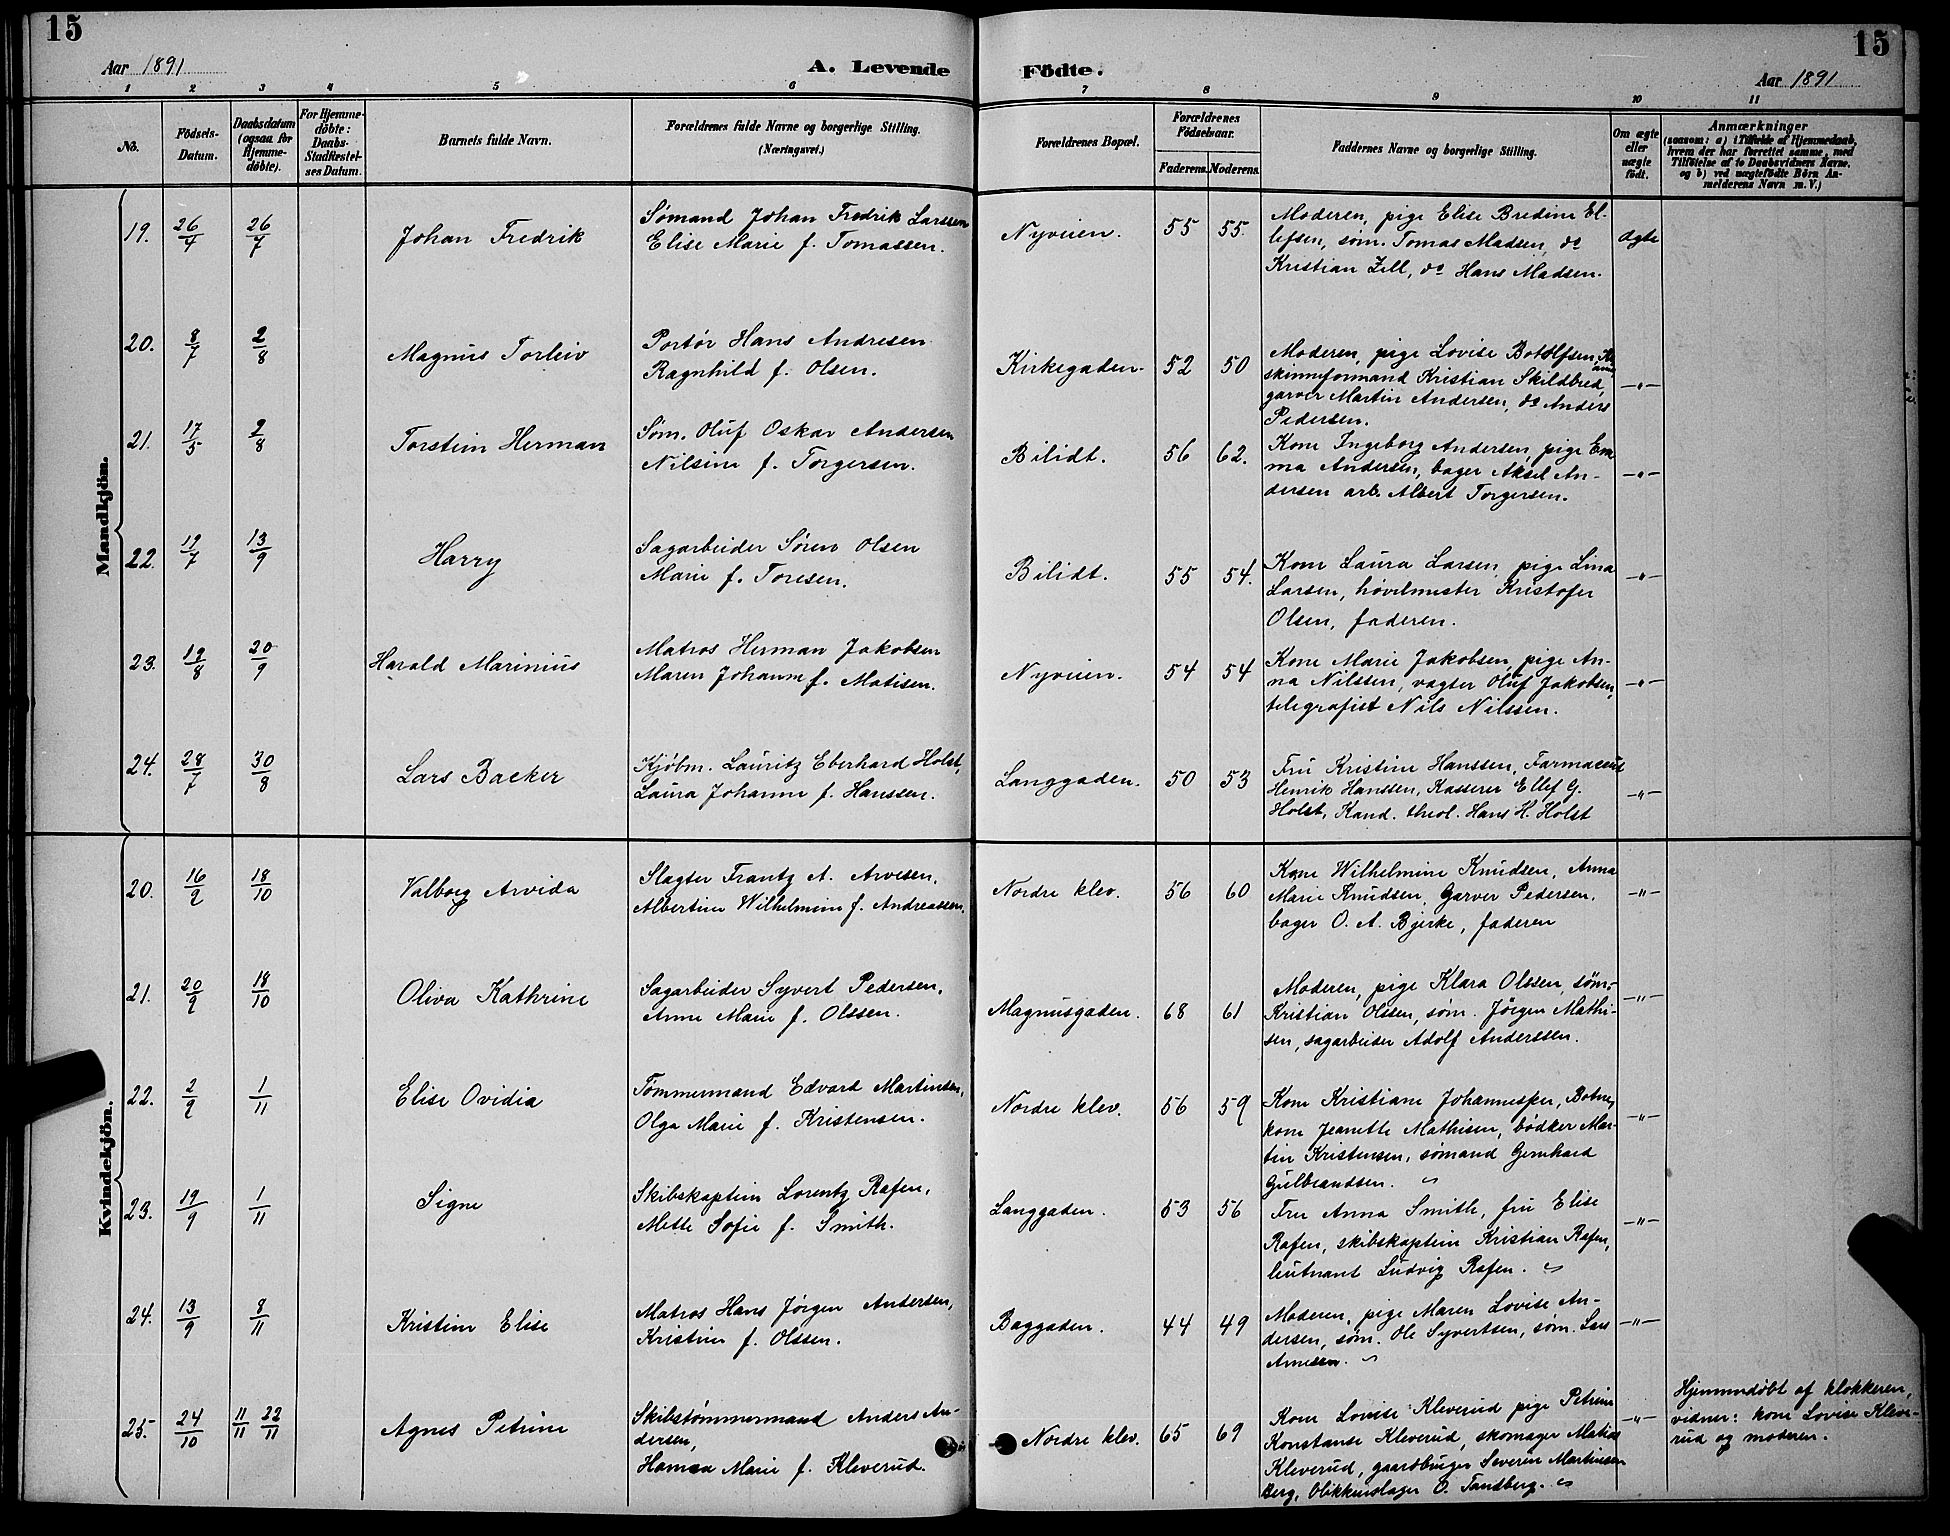 15
Aar 1891
A. Levende
Födte.
Aar 1891
15
1
2
3
4
5
6
7
8
9
10
11
No.
Födsels-
Datum.
Daabsdatum
(ogsaa for
Hjemme-
døbte).
For Hjemme-
døbte:
Daabs-
Stadfæstel-
ses Datum.
Barnets fulde Navn.
Forældrenes fulde Navne og borgerlige Stilling.
(Næringsvei.)
Forældrenes Bopæl.
Forældrenes
Födselsaar.
Faderens.
Moderens.
Faddernes Navne og borgerlige Stilling.
Om ægte
eller
uægte
födt.
Anmærkninger
(saasom: a) i Tilfælde af Hjemmedaab,
hvem der har forrettet samme, med
Tilföielse af to Daabsvidners Navne,
og b) ved uægtefödte Börn An-
melderens Navn m. V.)
Mandkjön.
19.
26/4
26/7
Johan Fredrik
Sømand Johan Fredrik Larssen
Elise Marie f. Tomassen.
Nyveien.
55
55.
Moderen, pige Elise Bredine El-
lefsen, søm. Tomas Madsen, do
Kristian Zell, do Hans Madsen.
ægte
20.
8/7
2/8
Magnus Torleiv
Portør Hans Andresen
Ragnhild f. Olsen.
Kirkegaden.
52
50
Moderen, pige Lovise Botolfsen,
skinneformand Kristian Skildbred,
garver Martin Andersen, do Anders
Pedersen.
-"-
21.
17/5
2/8
Torstein Herman
Søm. Oluf Oskar Andersen
Nilsine f. Torgersen.
Bilidt.
56
62.
Kone Ingeborg Andersen, pige Em
ma Andersen, bager Aksel An-
dersen arb. Albert Torgersen.
-"-
22.
19/7
13/9
Harry
Sagarbeider Søren Olsen
Marie f. Toresen.
Bilidt.
55
54.
Kone Laura Larsen, pige Lina
Larsen, høvelmester Kristofer
Olsen, faderen.
-"-
23.
19/8
20/9
Harald Marinius
Matros Herman Jakobsen
Maren Johanne f. Matisen.
Nyveien.
54
54
Kone Marie Jakobsen, pige An-
na Nilssen, vagter Oluf Jakobsen,
telegrafist Nils Nilssen.
-"-
24.
28/7
30/8
Lars Backer
Kjøbm. Lauritz Eberhard Holst,
Laura Johanne f. Hanssen.
Langgaden.
50
53
Fru Kristine Hanssen, Farmaceut
Henrik Hanssen, Kasserer Ellef G.
Holst, Kand. theol. Hans H. Holst
-"-
Kvindekjön.
20.
16/9
18/10
Valborg Arvida
Slagter Frantz A. Arvesen,
Albertine Wilhelmine f. Andreassen.
Nordre klev.
56
60
Kone Wilhelmine Knudsen, Anna
Marie Knudsen, Garver Pedersen,
bager O. A. Bjerke, faderen
-"-
21.
20/9
18/10
Oliva Kathrine
Sagarbeider Syvert Pedersen,
Anne Marie f. Olssen.
Magnusgaden.
68
61
Moderen, pige Klara Olssen, søm.
Kristian Olssen, søm. Jörgen Mathi-
sen, sagarbeider Adolf Anderssen.
-"-
22.
2/9
1/11
Elise Ovidia
Tømmermand Edvard Martinsen,
Olga Marie f. Kristensen.
Nordre klev.
56
59
Kone Kristiane Johannesper, Botne,
kone Jeanette Mathisen, bødker Mar-
tin Kristensen, sømand Gernhard
Gulbrandsen.
-"-
23.
19/9
1/11
Signe
Skibskaptein Lorentz Rafen,
Mette Sofie f. Smith.
Langgaden.
53
56
Fru Anna Smith, fru Elise
Rafen, skibskaptein Kristian Rafen,
leutnant Ludvig Rafen.
-"-
24.
13/9
8/11
Kristine Elise
Matros Hans Jörgen Andersen,
Kristine f. Olssen.
Baggaden.
44
49
Moderen, pige Maren Lovise An-
dersen, søm. Ole Syvertsen, søm. Lars
Arnesen.
-"-
25.
24/10
11/11 22/11
Agnes Petrine
Skibstømmermand Anders An-
dersen,
Hanna Marie f. Kleverud.
Nordre klev.
65
69
Kone Lovise Kleverud pige Petrine
Konstanse Kleverud, skomager Matias
Kleverud, gaardbruger Severin Martinsen
Berg, Blikkenslager O. Tandberg.
-"-
Hjemmedøbt af klokkeren,
vidner: kone Lovise Kleve-
rud og moderen.